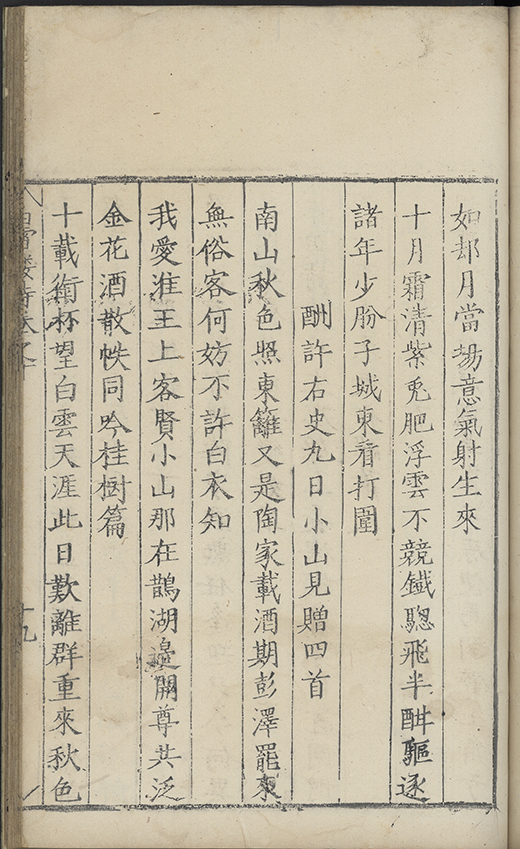 如却月當塲意氣射生來
十月霜清紫兎肥浮雲不競鐵驄飛半酣驅逐
諸年少肦子城東看打圍
酬許右史九日小山見贈四首
南山秋色照東籬又是陶家載酒期彭澤罷來
無俗客何妨不許白衣知
我愛淮王上客賢小山那在鵲湖邊開尊共泛
金花酒散帙同吟桂樹篇
十載銜杯望白雲天涯此日歎離群重來秋色
十九